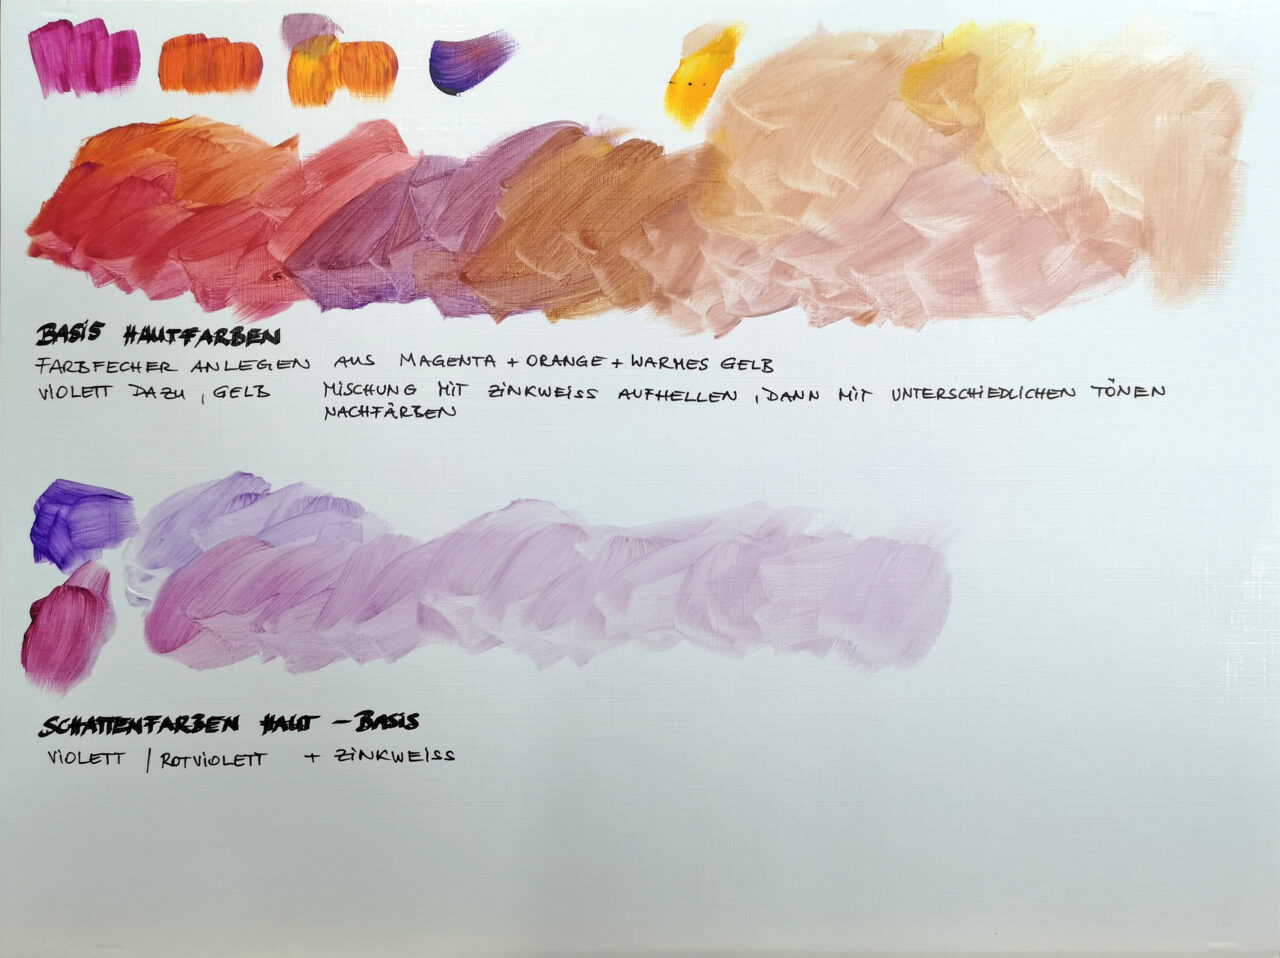 BASIS HAUTFARBEN
FARBFECHER ANLEGEN AUS MAGENTA + ORANGE + WARMES GELB
VIOLETT DAZU, GELB MISCHUNG MIT ZINKWEISS AUFHELLEN, DANN MIT UNTERSCHIEDLICHEN TÖNEN
NACHFÄRBEN
SCHATTENFARBEN HAUT – BASIS
VIOLETT / ROTVIOLETT + ZINKWEISS